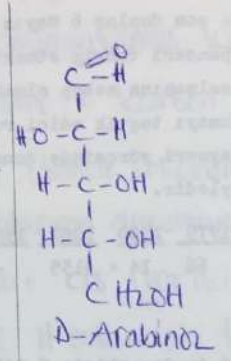 O
C-H
HO-C-H
H-C-OH
H-C-OH
CH2OH
D-Arabinoz